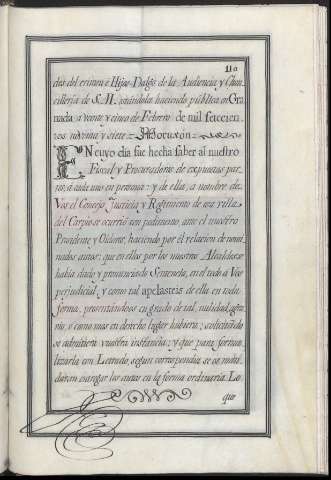 110
des del crimen é Hijos Dalgo de la Audiencia y Chan
cillería de S. M. estándola haciendo pública en Gra
nada a veinte y cinco de Febrero de mil seiscien
tos noventa y siete = Notificación =
EN cuyo dia fue hecha saber al nuestro
Fiscal y Procuradores de expresadas par
tes, á cada uno en persona: y de ella, á nombre de
Vos el Concejo, Justicia y Regimiento de esa villa
del Carpio se ocurrió con pedimento, ante el nuestro
Presidente y Oidores, haciendo por él relacion de nomi
nados autos: que en ellos por los nuestros Alcaldes se
habia dado y pronunciado Sentencia, en el todo a Vos
perjudicial, y como tal apelasteis de ella en toda
forma, presentándoos en grado de tal, nulidad, agra
vio, ó como mas en derecho lugar hubiera; solicitando
se admitiera vuestra instancia; y que para formali
lizarla con Letrado, segun correspondia se os man
daran entregar los autos en la forma ordinaria. Lo
que